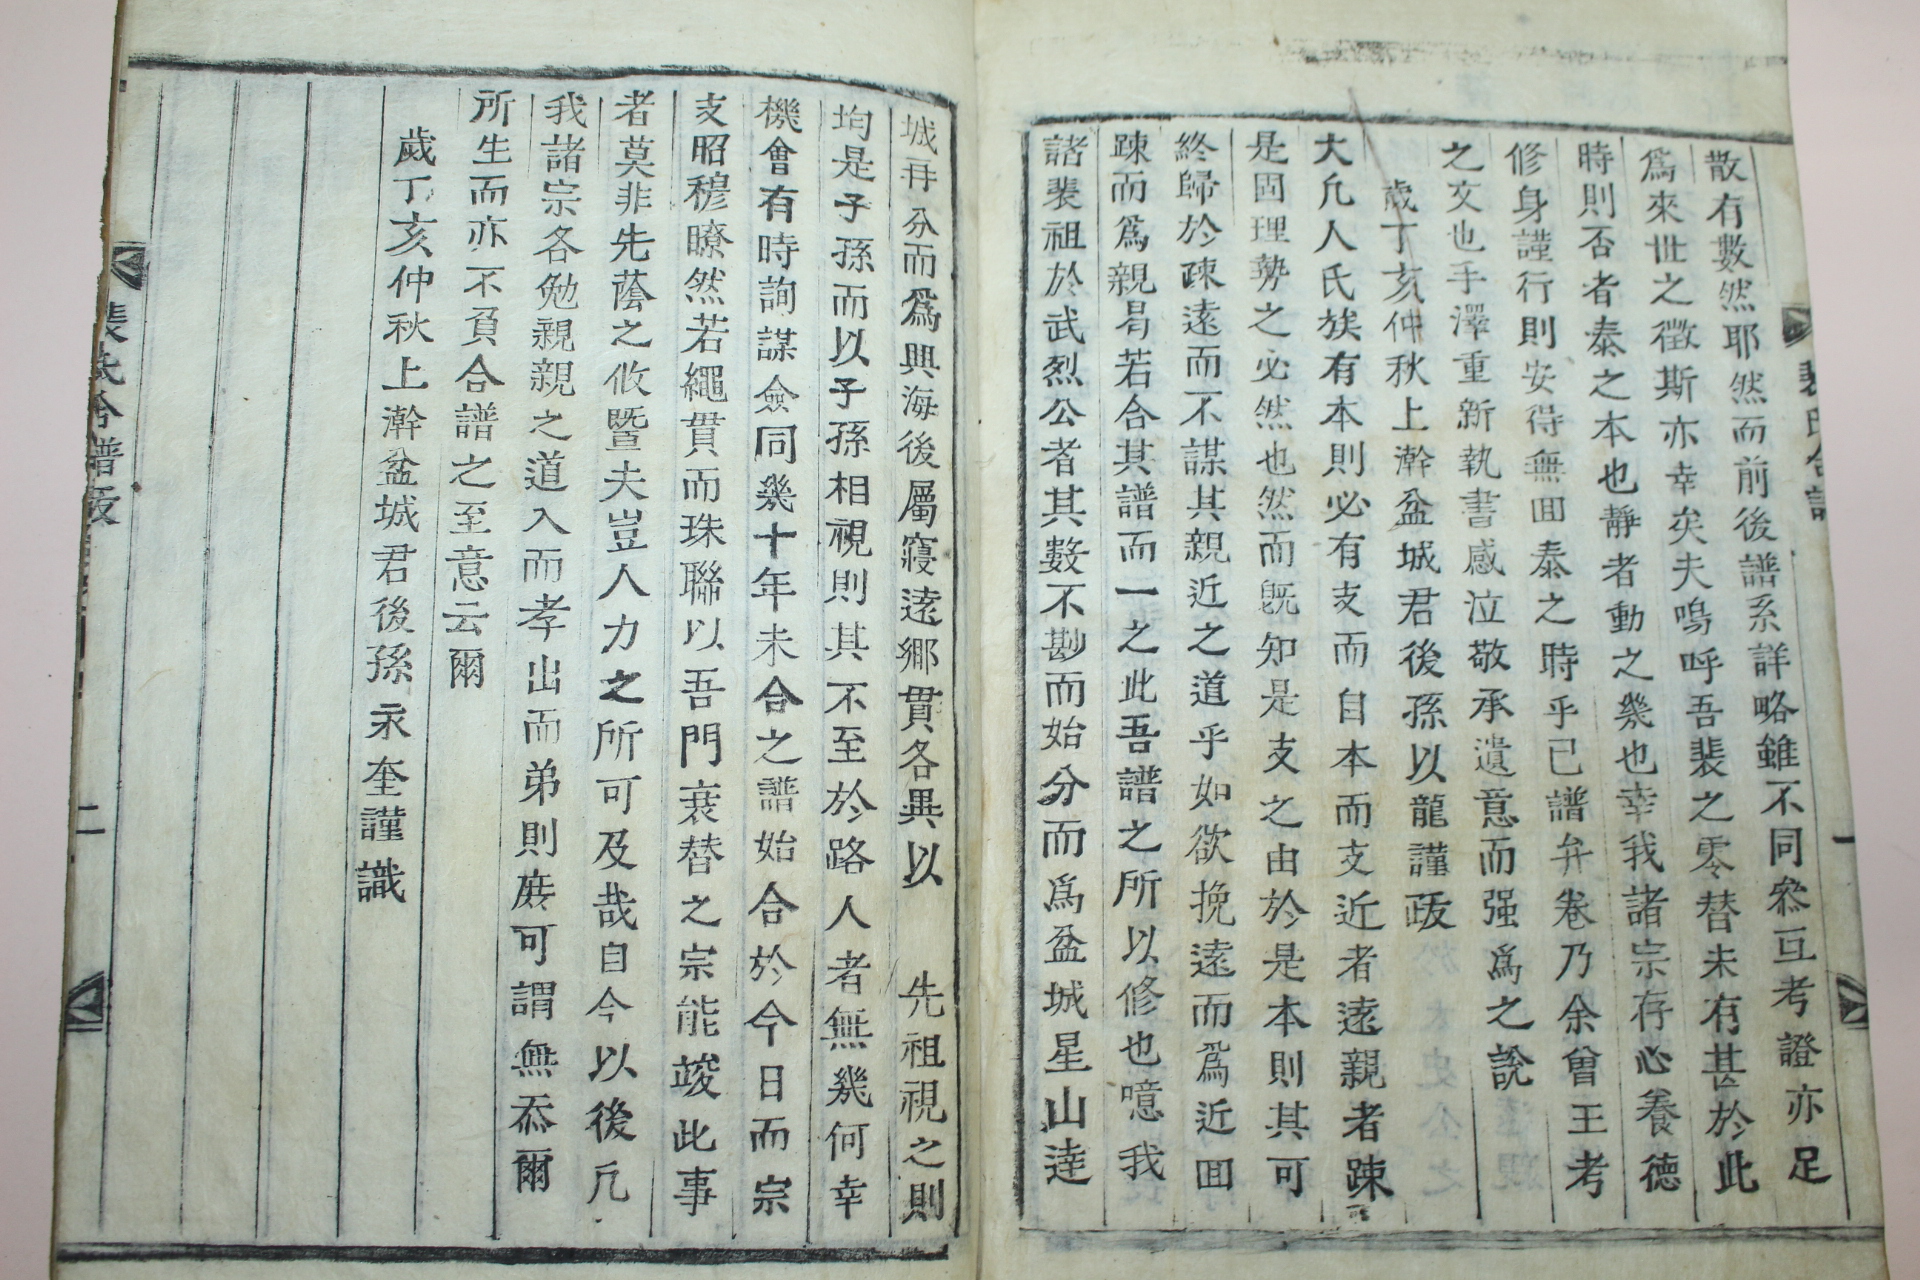 裴氏合譜
一
散有數然耶然而前後譜系詳略雖不同叅互考證亦足
爲來世之徵斯亦幸矣夫嗚呼吾裴之零替未有甚於此
時則否者泰之本也靜者動之幾也幸我諸宗存心養德
修身謹行則安得無回泰之時乎已譜弁卷乃余曾王考
之文也手澤重新執書感泣敬承遺意而强爲之說
歲丁亥仲秋上澣盆城君後孫以龍謹䟦
大凡人氏族有本則必有支而自本而支近者遠親者踈
是固理勢之必然也然而旣知是支之由於是本則其可
終歸於疎遠而不謀其親近之道乎如欲挽遠而爲近回
踈而爲親曷若合其譜而一之此吾譜之所以修也噫我
諸裴祖於武烈公者其數不尠而始分而爲盆城星山達
城再分而爲興海後屬寢遠鄕貫各異以 先祖視之則
均是子孫而以子孫相視則其不至於路人者無幾何幸
機會有時詢謀僉同幾十年未合之譜始合於今日而宗
支昭穆瞭然若繩貫而珠聯以吾門衰替之宗能竣此事
者莫非先蔭之攸曁夫豈人力之所可及哉自今以後凡
我諸宗各勉親親之道入而孝出而弟則庶可謂無忝爾
所生而亦不負合譜之至意云爾
歲丁亥仲秋上澣盆城君後孫永奎謹識
裴氏合譜䟦
二